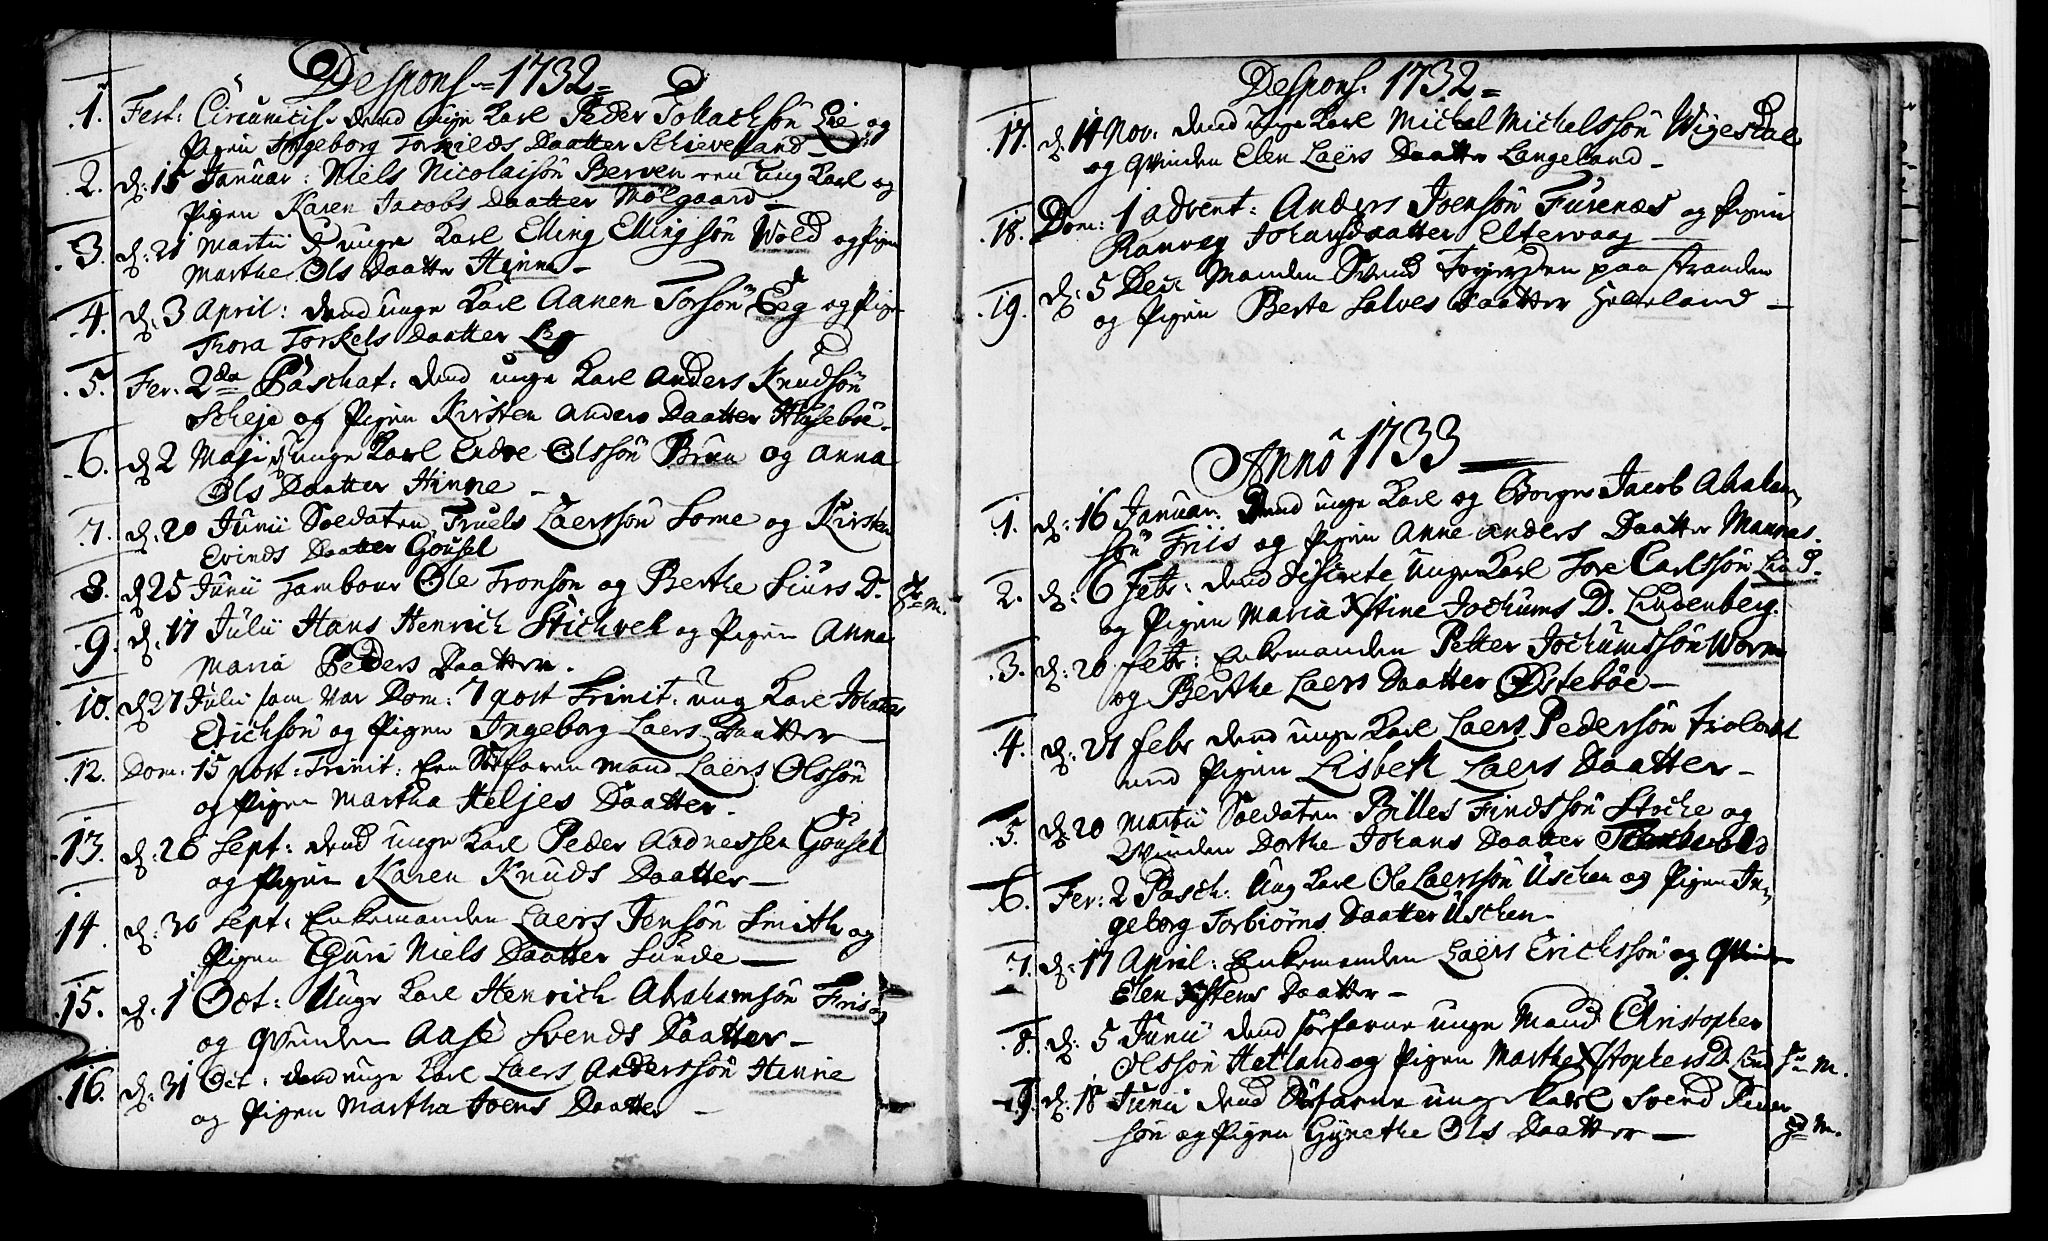 Despons. 1732
1. Fest: Circumcis. dend unge Karl Peder Tollachsön Lie og
Pigen Ingeborg Torkilds Daatter Schieveland
2. d: 15 Januar: Niels Nicolaisön Berven een ung Karl og
Pigen Karen Jacobs Daatter Mölgaard
3. d: 21 Martii d unge Karl Elling Ellingsön Wold og Pigen
Marthe Ols Daatter Hinne
4. d. 3 April: dend unge Karl Aanen Torsön Eeg og Pige
Thora Torkels Daatter
5. Fer: 2da Paschat: dend unge Karl Anders Knudsön
Scheje og Pigen Kirsten Anders Daatter Huseböe
6. d 2 Maji d unge Karl Endre Olssön Bruu og Anna
Ols Daatter Hinne
7. d. 20 Junii Soldaten Truels Laerssön Lome og Kirsten
Evinds Daatter Gousel
8. d 25 Junii Tambour Ole Tronsön og Berthe Siurs D.
9. d. 17 Julii Hans Henrich Stichvel og Pigen Anna
Maria Peders Daatter.
10. d 27 Julii som var Dom: 7 post Trinit: ung Karl Johannes
Erichsön og Pigen Ingeborg Laers Daatter
12. Dom: 15 post: Trinit: Een Söefaren Mand Laers Olssön
og Pigen Martha Heljes Daatter.
13. d: 26 Sept: dend unge Karl Peder Andressen Gousel
og Pigen Karen Knuds Daatter
14. d: 30 Sept: Enkemanden Laers Jensön Smith og
Pigen Guri Niels Daatter Sunde
15. d: 1 Oct: Unge Karl Henrich Abrahamsön Friis og
og Qvinden Aase Svends Daatter
16. d: 31 Oct: dend unge Karl Laers Anderssön Hinne
og Pigen Martha Joens Daatter
Despons. 1732
17. d. 14 Nov: dend unge Karl Michel Michelssön Wigesdal
og Qvinden Elen Laers Daatter Langeland
18. Dom: 1 advent: Anders Joensön Furenæs og Pigen
Ranveg Johans Daatter Eltervaag
19. d: 5 Dec: Manden Svend paa Stranden
og Pigen Berte Salves Daatter Helleland
Anno 1733
1. d: 16 Januar. Dend unge Karl og Borger Jacob Abraham
sön Friis og Pigen Anne Anders Daatter Mannas.
2. d: 6 Febr: dend discrete unge Karl Tore Carlssön Lind.
og Pigen Maria Xstine Jochums D. Lindenberg.
3. d: 20 Febr: Enkemanden Petter Jochumssön Worm
og Berthe Laers Daatter Östeböe
4. d: 21 Febr dend unge Karl Laers Pedersön
med Pigen Lisbeth Laers Daatter
5. d: 20 Martii Soldaten Billes Findssön og
Qvinden Dorthe Johans Daatter
6. Fer: 2 Pasch: Ung Karl Ole Laerssön Uschen og Pigen In-
geborg Torbiörns Daatter Uschen
7. d: 17 April: Enkemanden Laers Erichssön og Qvinden
Elen Xstens Daatter
8. d: 5 Junii dend söefarne unge Mand Christopher
Olssön Hetland og Pigen Marthe Xstophers D. Lund
9. d: 18 Junii dend Söefarne unge Karl Svend Peder
sön og Pigen Gynethe Ols Daatter